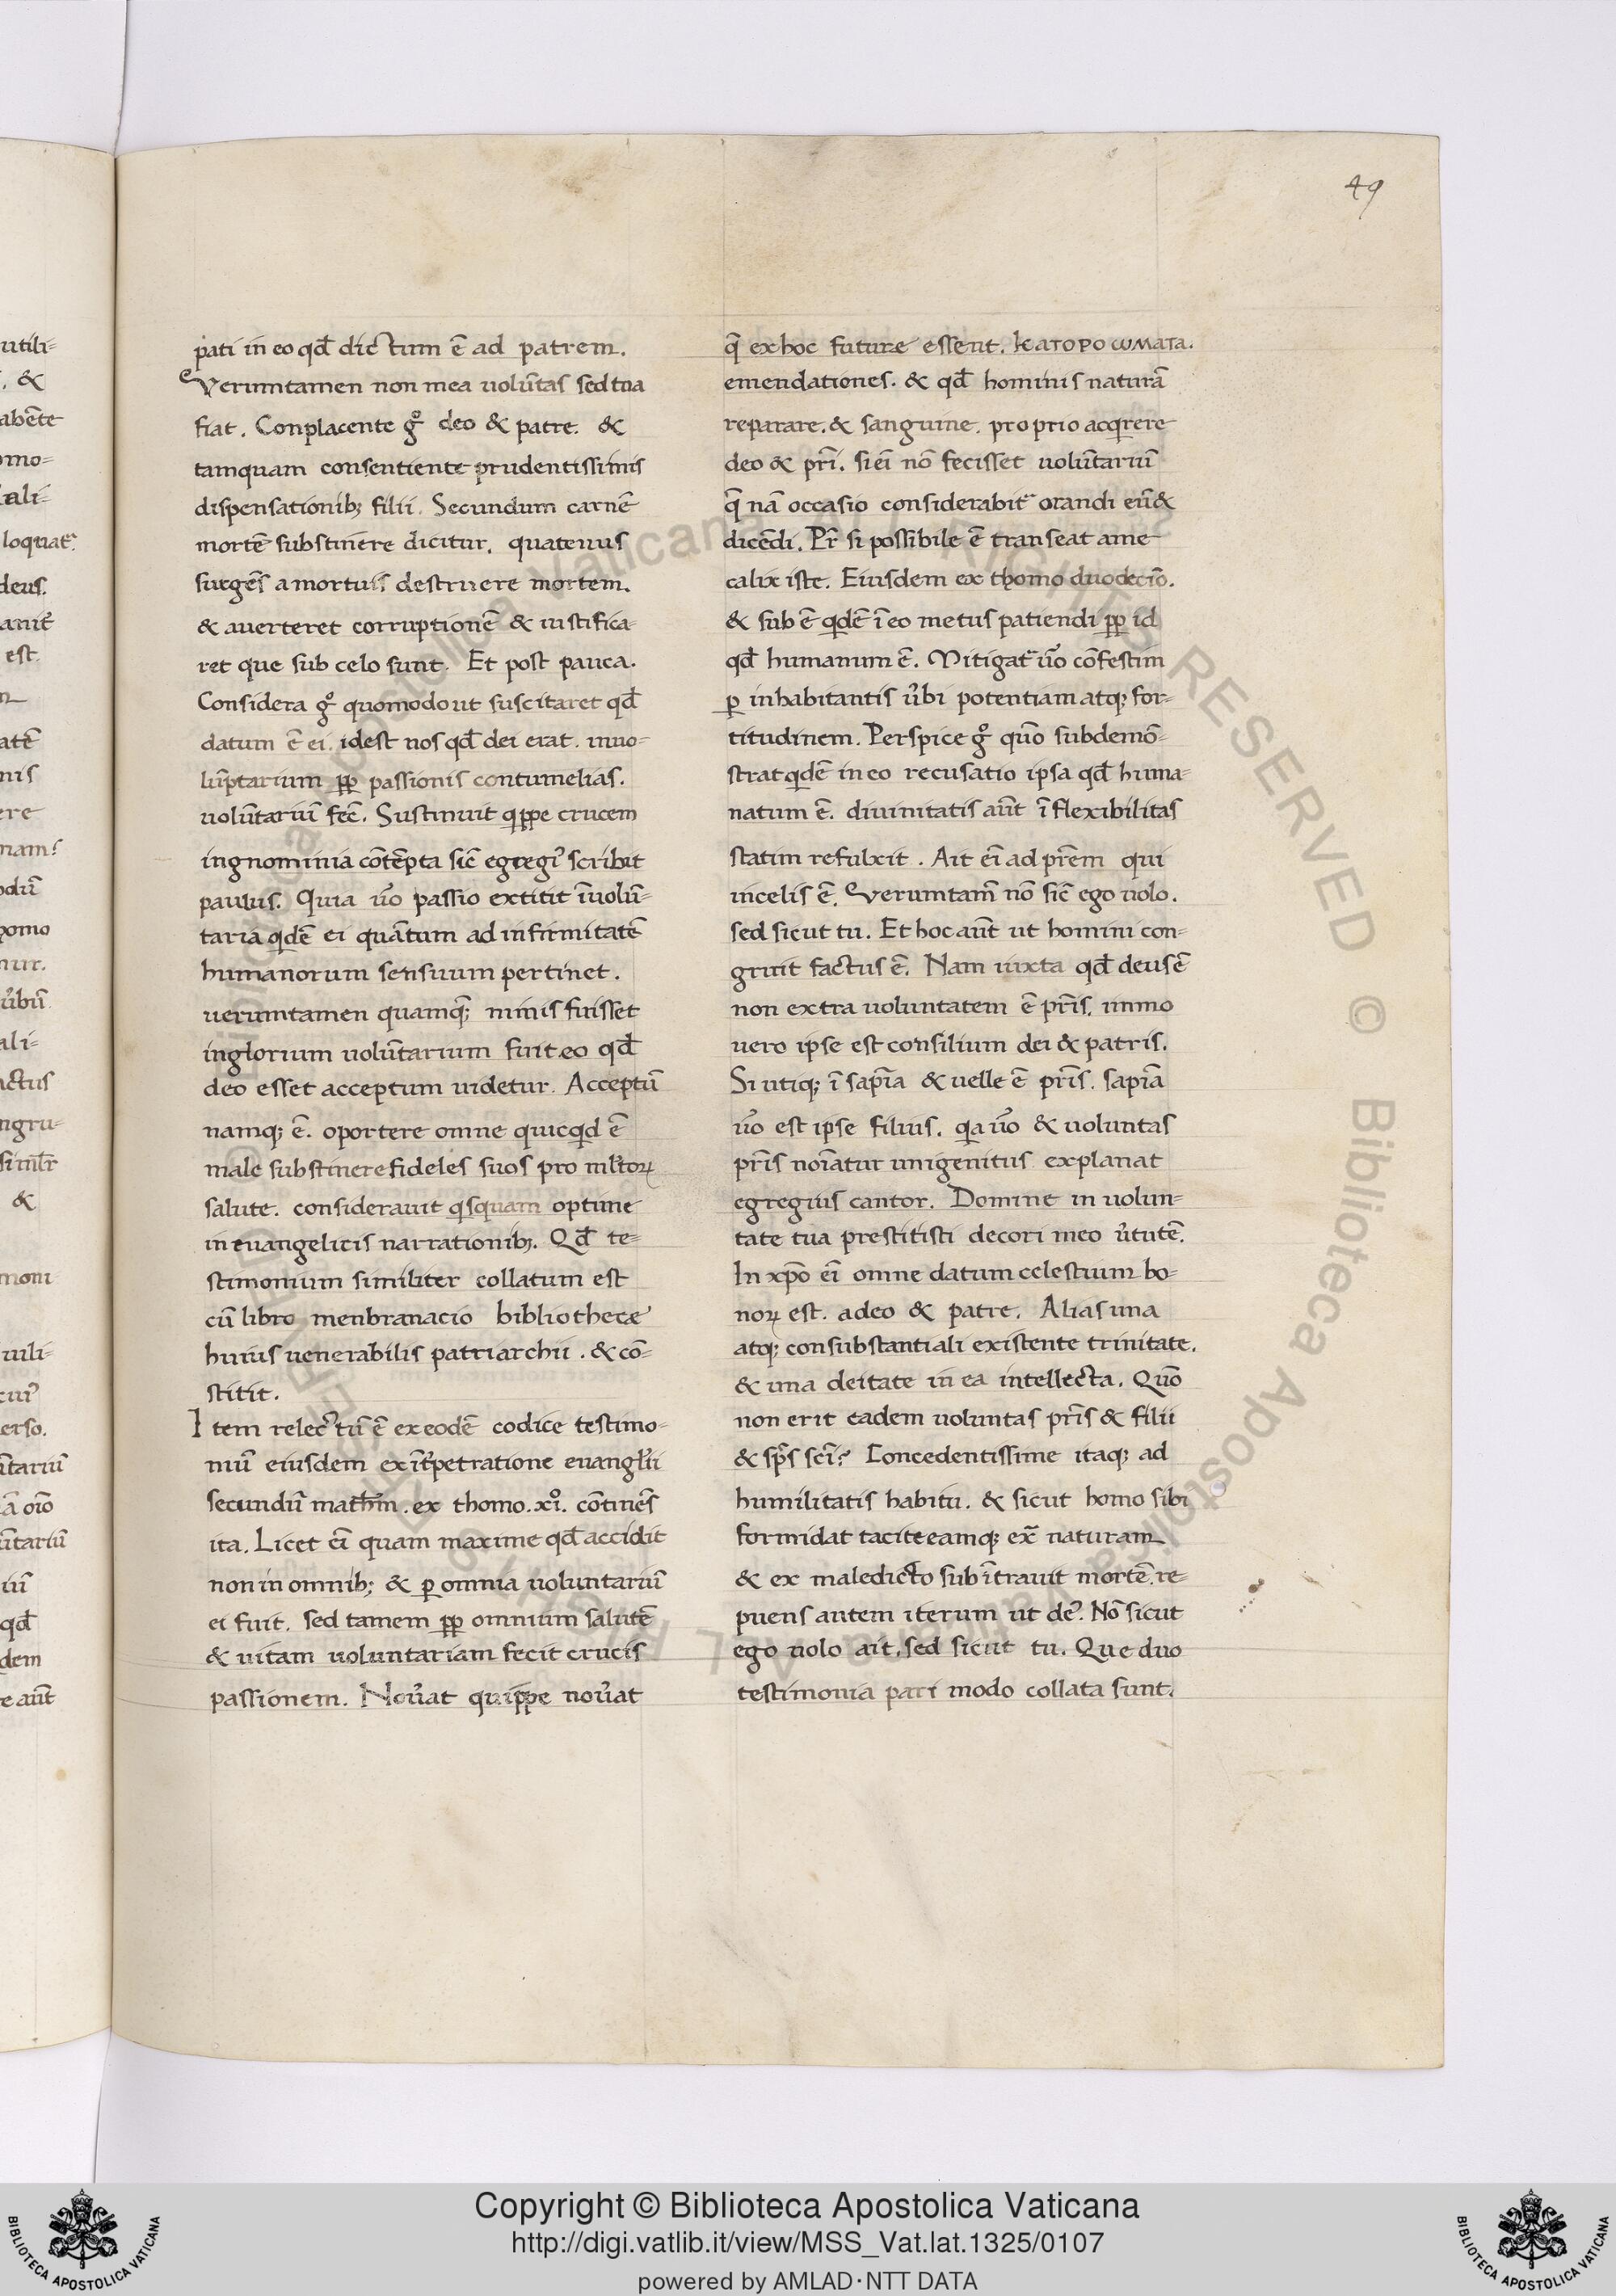 49
utili-
. &
abēte
omo-
ali-
loquat᷑.
deus.
est.
atē
nis
ere
nam?
odū
pomo
nur.
u̓bū
ali-
actus
ngru-
siml̄r
&
moni
uili-
cui᷒
erso.
ūtariū
ā oīo
ūtariū
iū
qd̄
dem
e aūt
pati in eo qd̄ dictum ē ad patrem.
Verumtamen non mea volūtas sed tua
fiat. Conplacente gͦ deo & patre. &
tamquam consentiente prudentissimis
dispensationib; filii. Secundum carnē
mortē substinere dicitur. quatenus
surgēs a mortuis destruere mortem.
& averteret corruptionē & iustifica-
ret que sub celo sunt. Et post pauca.
Considera gͦ quomodo ut suscitaret qd̄
datum ē ei. idest nos qd̄ dei erat. inuo-
lūptarium ꝓꝑ passionis contumelias.
uolūtariū fec̄. Sustinuit qppe crucem
ingnominia cōtēpta sic̄ egregi᷒ scribit
paulus. Quia u̓o passio extitit īuolū-
taria qdē ei quātum ad infirmitatē
humanorum sensuum pertinet.
uerumtamen quamq̄; nimis fuisset
inglorium uolūtarium fuit eo qd̄
deo esset acceptum uidetur. Acceptū
namq; ē. oportere omne quicqd ē
male substinere fideles suos pro ml̄toꝝ
salute. considerauit qsquam optime
in euangelicis narrationib;. Qd̄ te-
stimonium similiter collatum est
cū libro menbranacio bibliothecæ
huius uenerabilis patriarchii. & cō-
stitit.
Item relectū ē ex eodē codice testimo-
niū eiusdem ex īt̓petratione euangl̓ii
secundū mathm̄. ex thomo. xi͛. cōtinēs
ita. Licet ei̅ quam maxime qd̄ accidit
non in omnib; & ꝑ omnia uoluntariū
ei fuit. sed tamem ꝓꝑ omnium salutē
& uitam uoluntariam fecit crucis
passionem. Nou̓at quippe nou̓at
q̄ ex hoc future essent. ΚΑΤΟΡΟωΜΑΤΑ.
emendationes. & qd̄ hominis naturā
reparare. & sanguine. proprio acqrere
deo & pr̄i. si ei̅ nō fecisset uolūtariū
q̄ nā occasio considerabit᷑ orandi eū &
dicēdi. Pr̄ si possibile ē transeat a me
calix iste. Eiusdem ex thomo duodecīo.
& sub ē qdē ī eo metus patiendi ꝓꝑ id
qd̄ humanum ē. Mitigat᷑ u̓o cōfestim
ꝑ inhabitantis u̓bi potentiam atq; for-
titudinem. Perspice gͦ quō subdemō-
strat qdē in eo recusatio ipsa qd̄ huma-
natum ē. diuinitatis aūt īflexibilitas
statim refulxit. Ait ei̅ ad pr̄em qui
in celis ē. Verumtam̄ nō sic̄ ego uolo.
sed sicut tu. Et hoc aūt ut homini con-
gruit factus ē. Nam iuxta qd̄ deus ē
non extra voluntatem ē pr̄is. immo
uero ipse est consilium dei & patris.
Si utiq; ī sapīa & uelle ē pr̄is. sapīa
u̓o est ipse filius. qa u̓o & uoluntas
pr̄is noīatur unigenitus explanat
egregius cantor. Domine in uolun-
tate tua prestitisti decori meo u̓tutē.
In xp̄o ei̅ omne datum celestium bo-
noꝝ est. a deo & patre. Alias una
atq; consubstantiali existente trinitate.
& una deitate in ea intellecta. Quō
non erit eadem uoluntas pr̄is & filii
& sp̄s sc̄i? Concedentissime itaq; ad
humilitatis habitu. & sicut homo sibi
formidat tacite eamq; ex̄ naturam
& ex maledicto subītrauit mortē. re-
puens autem iterum ut de᷒. Nō sicut
ego uolo ait. sed sicut tu. Que duo
testimonia pari modo collata sunt.
© Biblioteca Apostolica Vaticana ALL RIGHTS RESERVED
Copyright © Biblioteca Apostolica Vaticana
http://digi.vatlib.it/view/MSS_Vat.lat.1325/0107
powered by AMLAD·NTT DATA
BIBLIOTECA APOSTOLICA VATICANA
BIBLIOTECA APOSTOLICA VATICANA